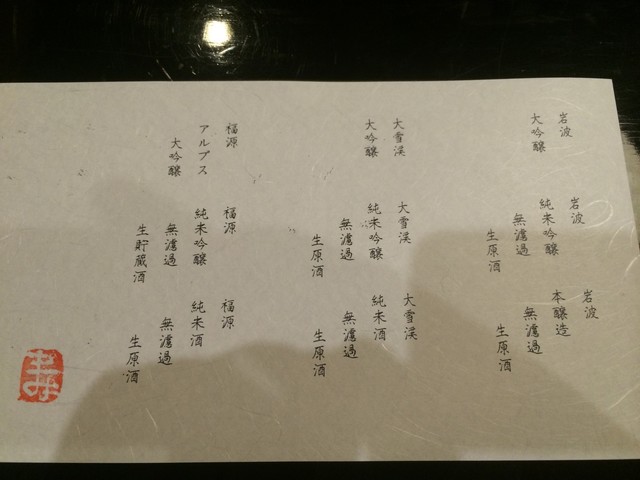 岩波
大吟醸
岩波
純米吟醸
無濾過
生原酒
岩波
本醸造
無濾過
生原酒
大雪渓
大吟醸
大雪渓
純米吟醸
無濾過
生原酒
大雪渓
純米酒
無濾過
生原酒
福源
アルプス
大吟醸
福源
純米吟醸
無濾過
生貯蔵酒
福源
純米酒
無濾過
生原酒